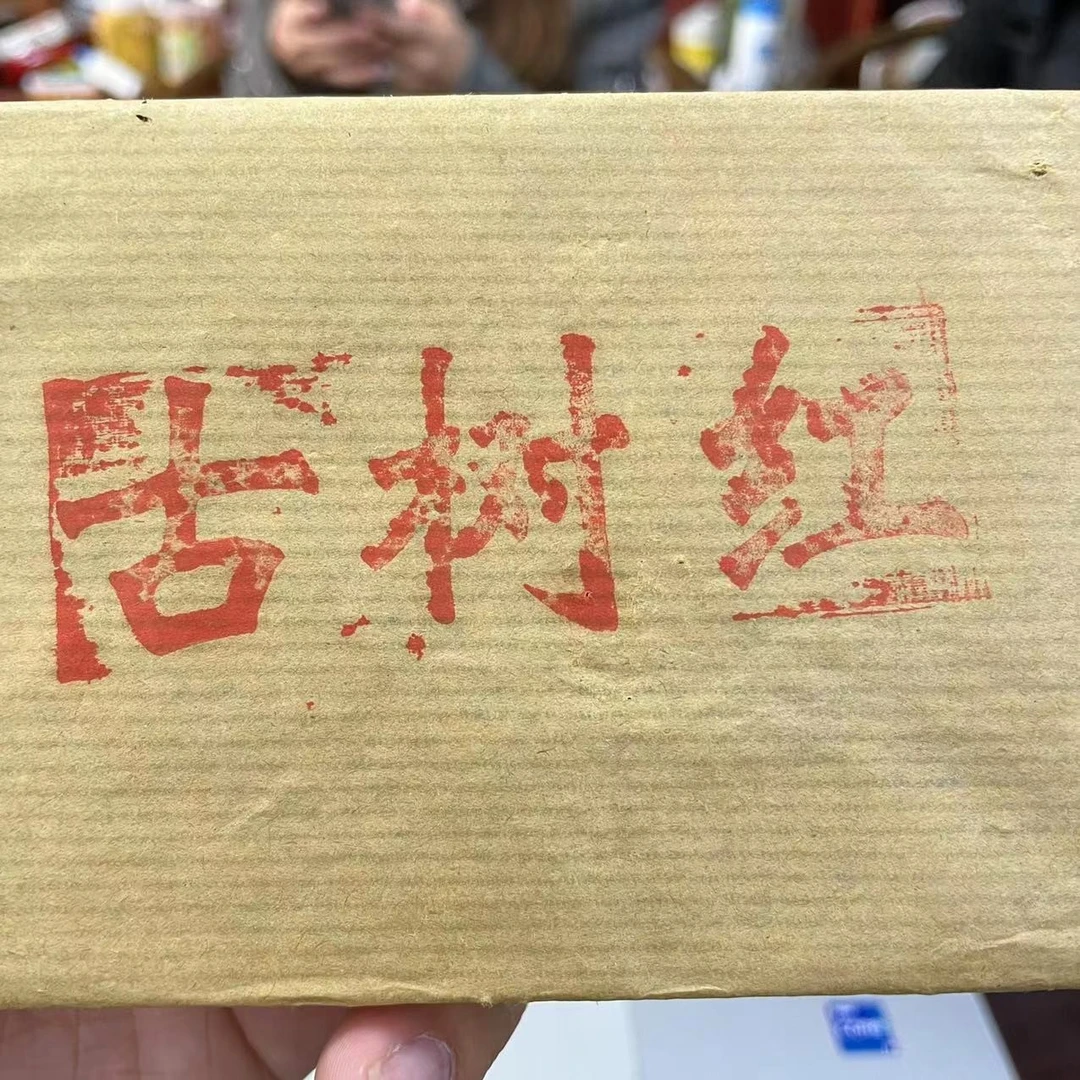 古树红